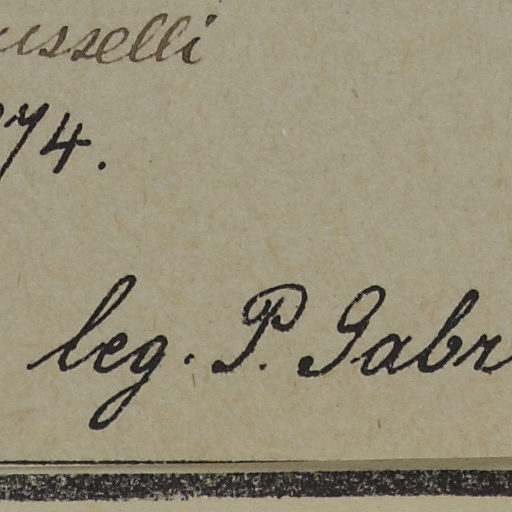 usselli
74.
leg. P. Gabr